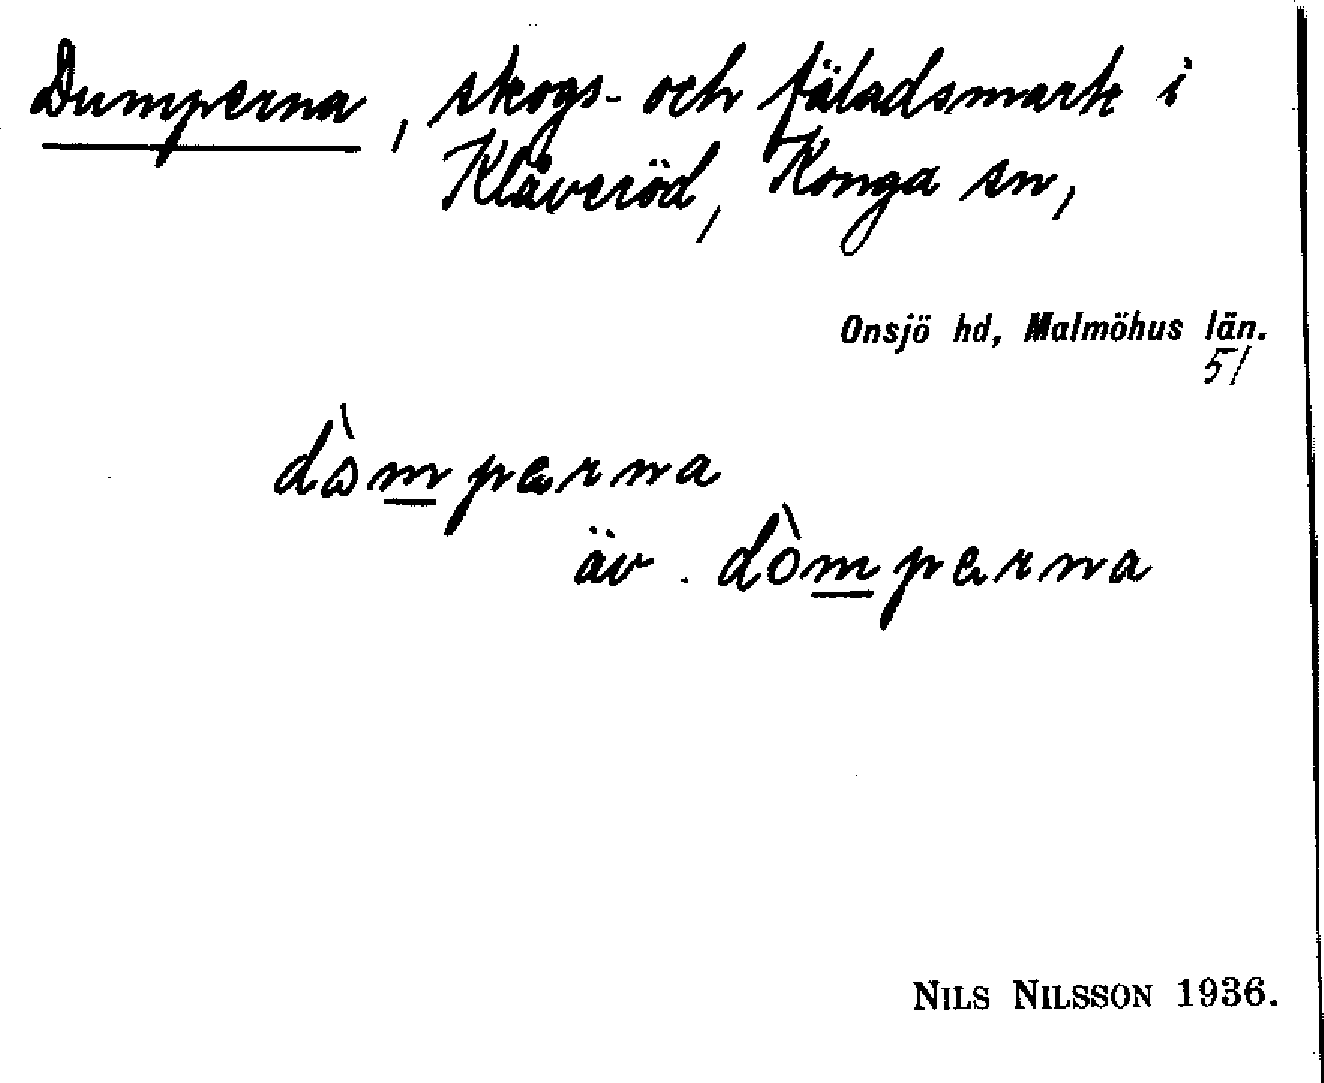 Dumperna, skogs- och fäladsmark i
Klåveröd, Konga sn,
Onsjö hd, Malmöhus län.
51
dòmperna
äv. dòmperna
NILS NILSSON 1936.